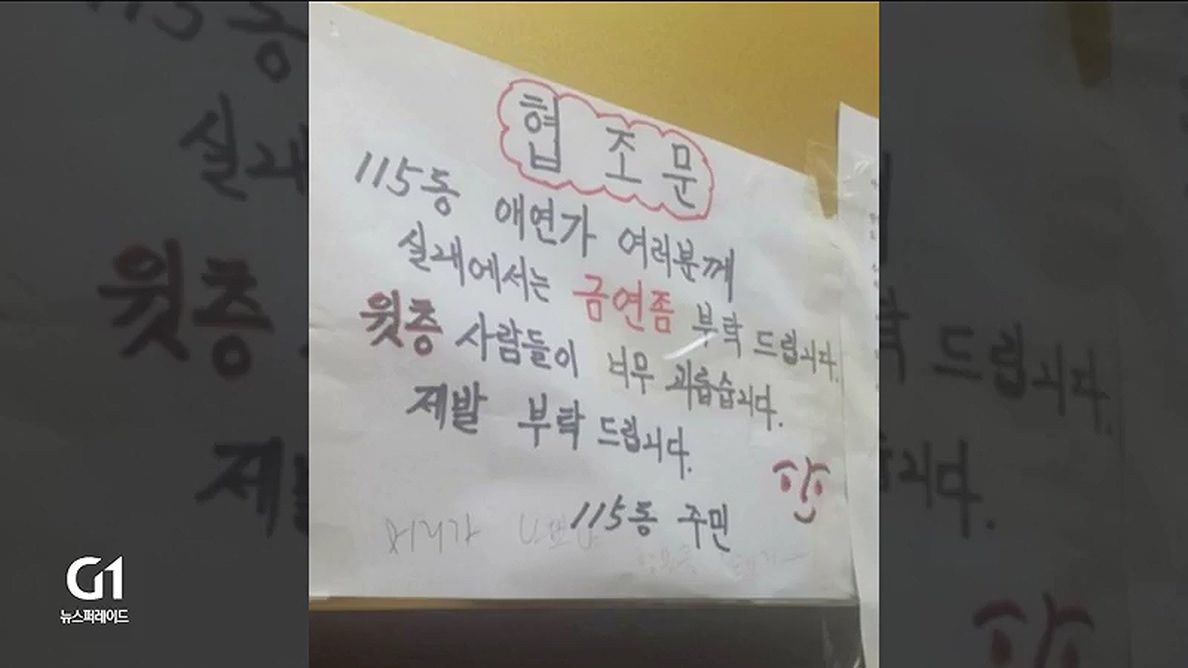 협 조 문
115동 애연가 여러분께
실내에서는 금연좀 부탁 드립니다.
윗층 사람들이 너무 괴롭습니다.
제발 부탁 드립니다.
115동 주민
머리가
G1
뉴스퍼레이드